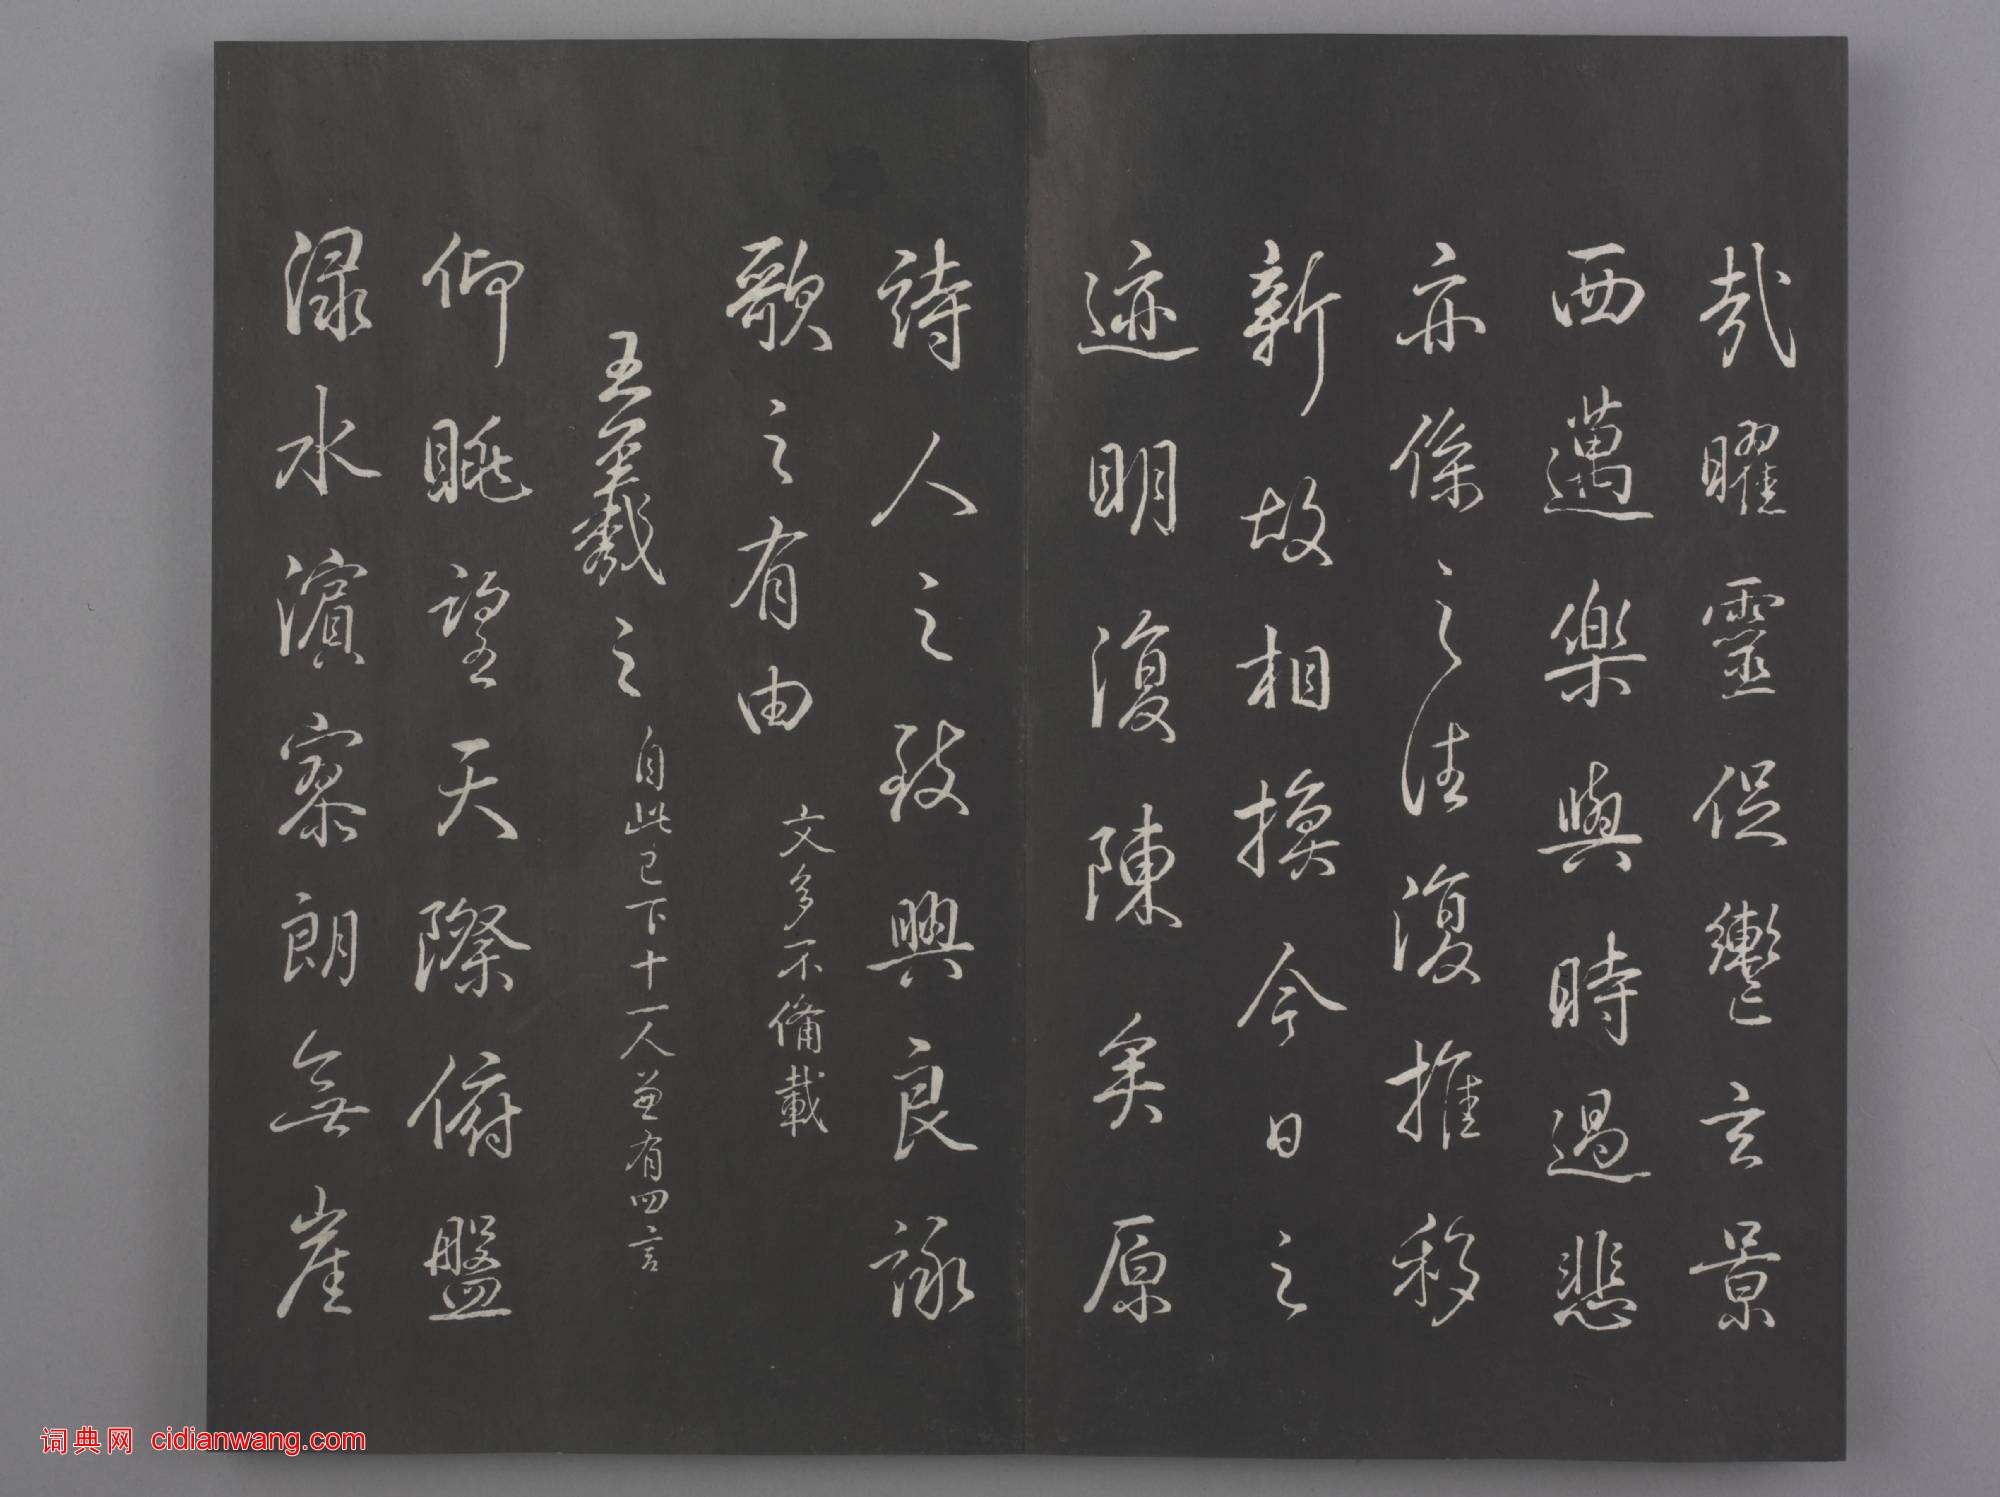 哉曜靈促轡玄景
西邁樂與時過悲
亦係之往復推移
新故相換今日之
迹明復陳矣原
詩人之致興良詠
歌之有由 文多不備載
王羲之 自此已下十一人兼有四言
仰眺望天際俯盤
渌水濱寥朗無崖
词典网 cidianwang.com